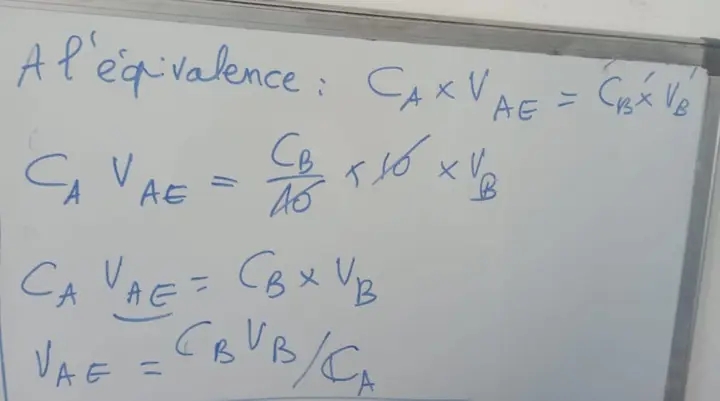 A l'équivalence : C_A × V_AE = C'_B × V'_B
C_A V_AE = C_B/10 × 10 × V_B
C_A V_AE = C_B × V_B
V_AE = C_B V_B / C_A